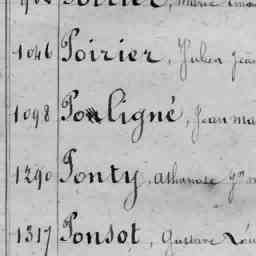 1046 Poirier, Julien Jean
1098 Pouligné, Jean Ma
1290 Ponty, Athanase
1317 Ponsot, Gustave Loui